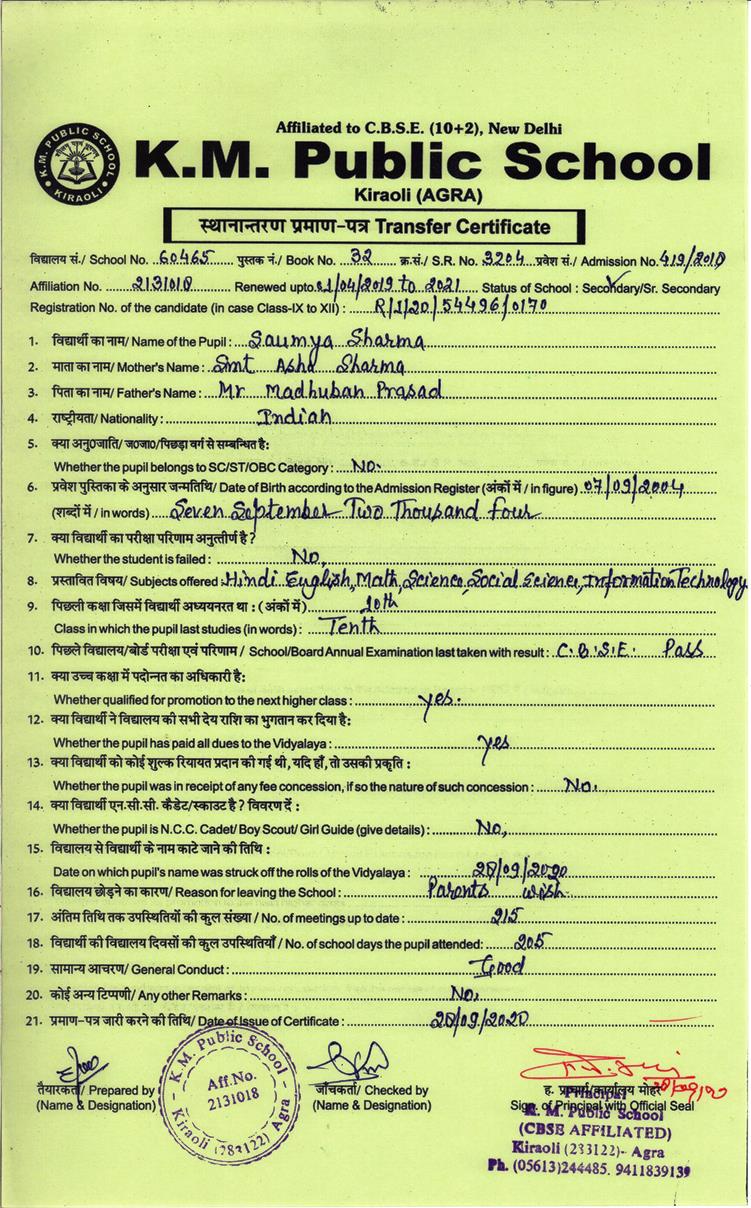 Affiliated to C.B.S.E. (10+2), New Delhi
K.M. PUBLIC SCHOOL
KIRAOLI
K.M. Public School
Kiraoli (AGRA)
स्थानान्तरण प्रमाण-पत्र Transfer Certificate
विद्यालय सं./ School No. 60465 पुस्तक नं./ Book No. 32 क्र.सं./ S.R. No. 3204 प्रवेश सं./ Admission No. 419/2018
Affiliation No. 2131018 Renewed upto 01/04/2019 to 2021 Status of School : Secondary/Sr. Secondary
Registration No. of the candidate (in case Class-IX to XII) : R/1/20/54496/0170
1. विद्यार्थी का नाम/ Name of the Pupil : Saumya Sharma
2. माता का नाम/ Mother's Name : Smt Asha Sharma
3. पिता का नाम/ Father's Name : Mr Madhuban Prasad
4. राष्ट्रीयता/ Nationality : Indian
5. क्या अनु0जाति/ ज0जा0/पिछड़ा वर्ग से सम्बन्धित है:
Whether the pupil belongs to SC/ST/OBC Category : No.
6. प्रवेश पुस्तिका के अनुसार जन्मतिथि/ Date of Birth according to the Admission Register (अंकों में / in figure) 07/09/2004
(शब्दों में / in words) Seven September Two Thousand four
7. क्या विद्यार्थी का परीक्षा परिणाम अनुत्तीर्ण है?
Whether the student is failed : No,
8. प्रस्तावित विषय/ Subjects offered : Hindi English, Math, Science, Social Science, Information Technology
9. पिछली कक्षा जिसमें विद्यार्थी अध्ययनरत था : (अंकों में) 10th
Class in which the pupil last studies (in words) : Tenth
10. पिछले विद्यालय/बोर्ड परीक्षा एवं परिणाम / School/Board Annual Examination last taken with result : C.B.S.E. Pass
11. क्या उच्च कक्षा में पदोन्नत का अधिकारी है:
Whether qualified for promotion to the next higher class : yes.
12. क्या विद्यार्थी ने विद्यालय की सभी देय राशि का भुगतान कर दिया है:
Whether the pupil has paid all dues to the Vidyalaya : yes
13. क्या विद्यार्थी को कोई शुल्क रियायत प्रदान की गई थी, यदि हाँ, तो उसकी प्रकृति :
Whether the pupil was in receipt of any fee concession, if so the nature of such concession : No.
14. क्या विद्यार्थी एन.सी.सी. कैडेट/स्काउट है ? विवरण दें :
Whether the pupil is N.C.C. Cadet/ Boy Scout/ Girl Guide (give details) : No,
15. विद्यालय से विद्यार्थी के नाम काटे जाने की तिथि :
Date on which pupil's name was struck off the rolls of the Vidyalaya : 28/09/2020
16. विद्यालय छोड़ने का कारण/ Reason for leaving the School : Parents wish
17. अंतिम तिथि तक उपस्थितियों की कुल संख्या / No. of meetings up to date : 215
18. विद्यार्थी की विद्यालय दिवसों की कुल उपस्थितियाँ / No. of school days the pupil attended: 205
19. सामान्य आचरण/ General Conduct : Good
20. कोई अन्य टिप्पणी/ Any other Remarks : No,
21. प्रमाण-पत्र जारी करने की तिथि/ Date of Issue of Certificate : 28/09/2020
K.M. Public School
Aff.No.
2131018
Kiraoli (283122) Agra
तैयारकर्ता/ Prepared by
(Name & Designation)
जाँचकर्ता/ Checked by
(Name & Designation)
ह. प्राचार्य/कार्यालय मोहर
Sign. of Principal with Official Seal
Principal
K. M. Public School
(CBSE AFFILIATED)
Kiraoli (233122)- Agra
Ph. (05613)244485, 9411839139